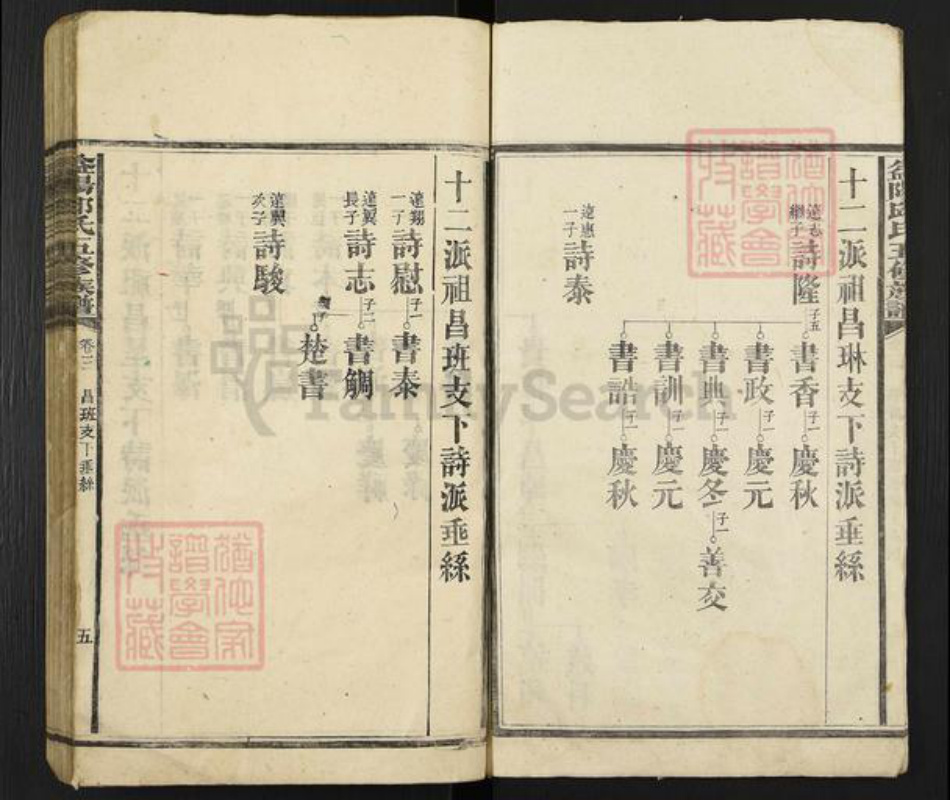 十二派祖昌琳支下詩派垂絲
達志
繼子
詩隆
子五
書香
子一
慶秋
書政
子一
慶元
書典
子一
慶冬
子一
善交
書訓
子一
慶元
書誥
子一
慶秋
達惠
一子
詩泰
十二派祖昌班支下詩派垂絲
達翔
一子
詩慰
子一
書泰
達翼
長子
詩志
子二
書鵰
楚書
達興
次子
詩駿
氏五修族譜
卷三
昌班支下垂絲
五
FamilySearch